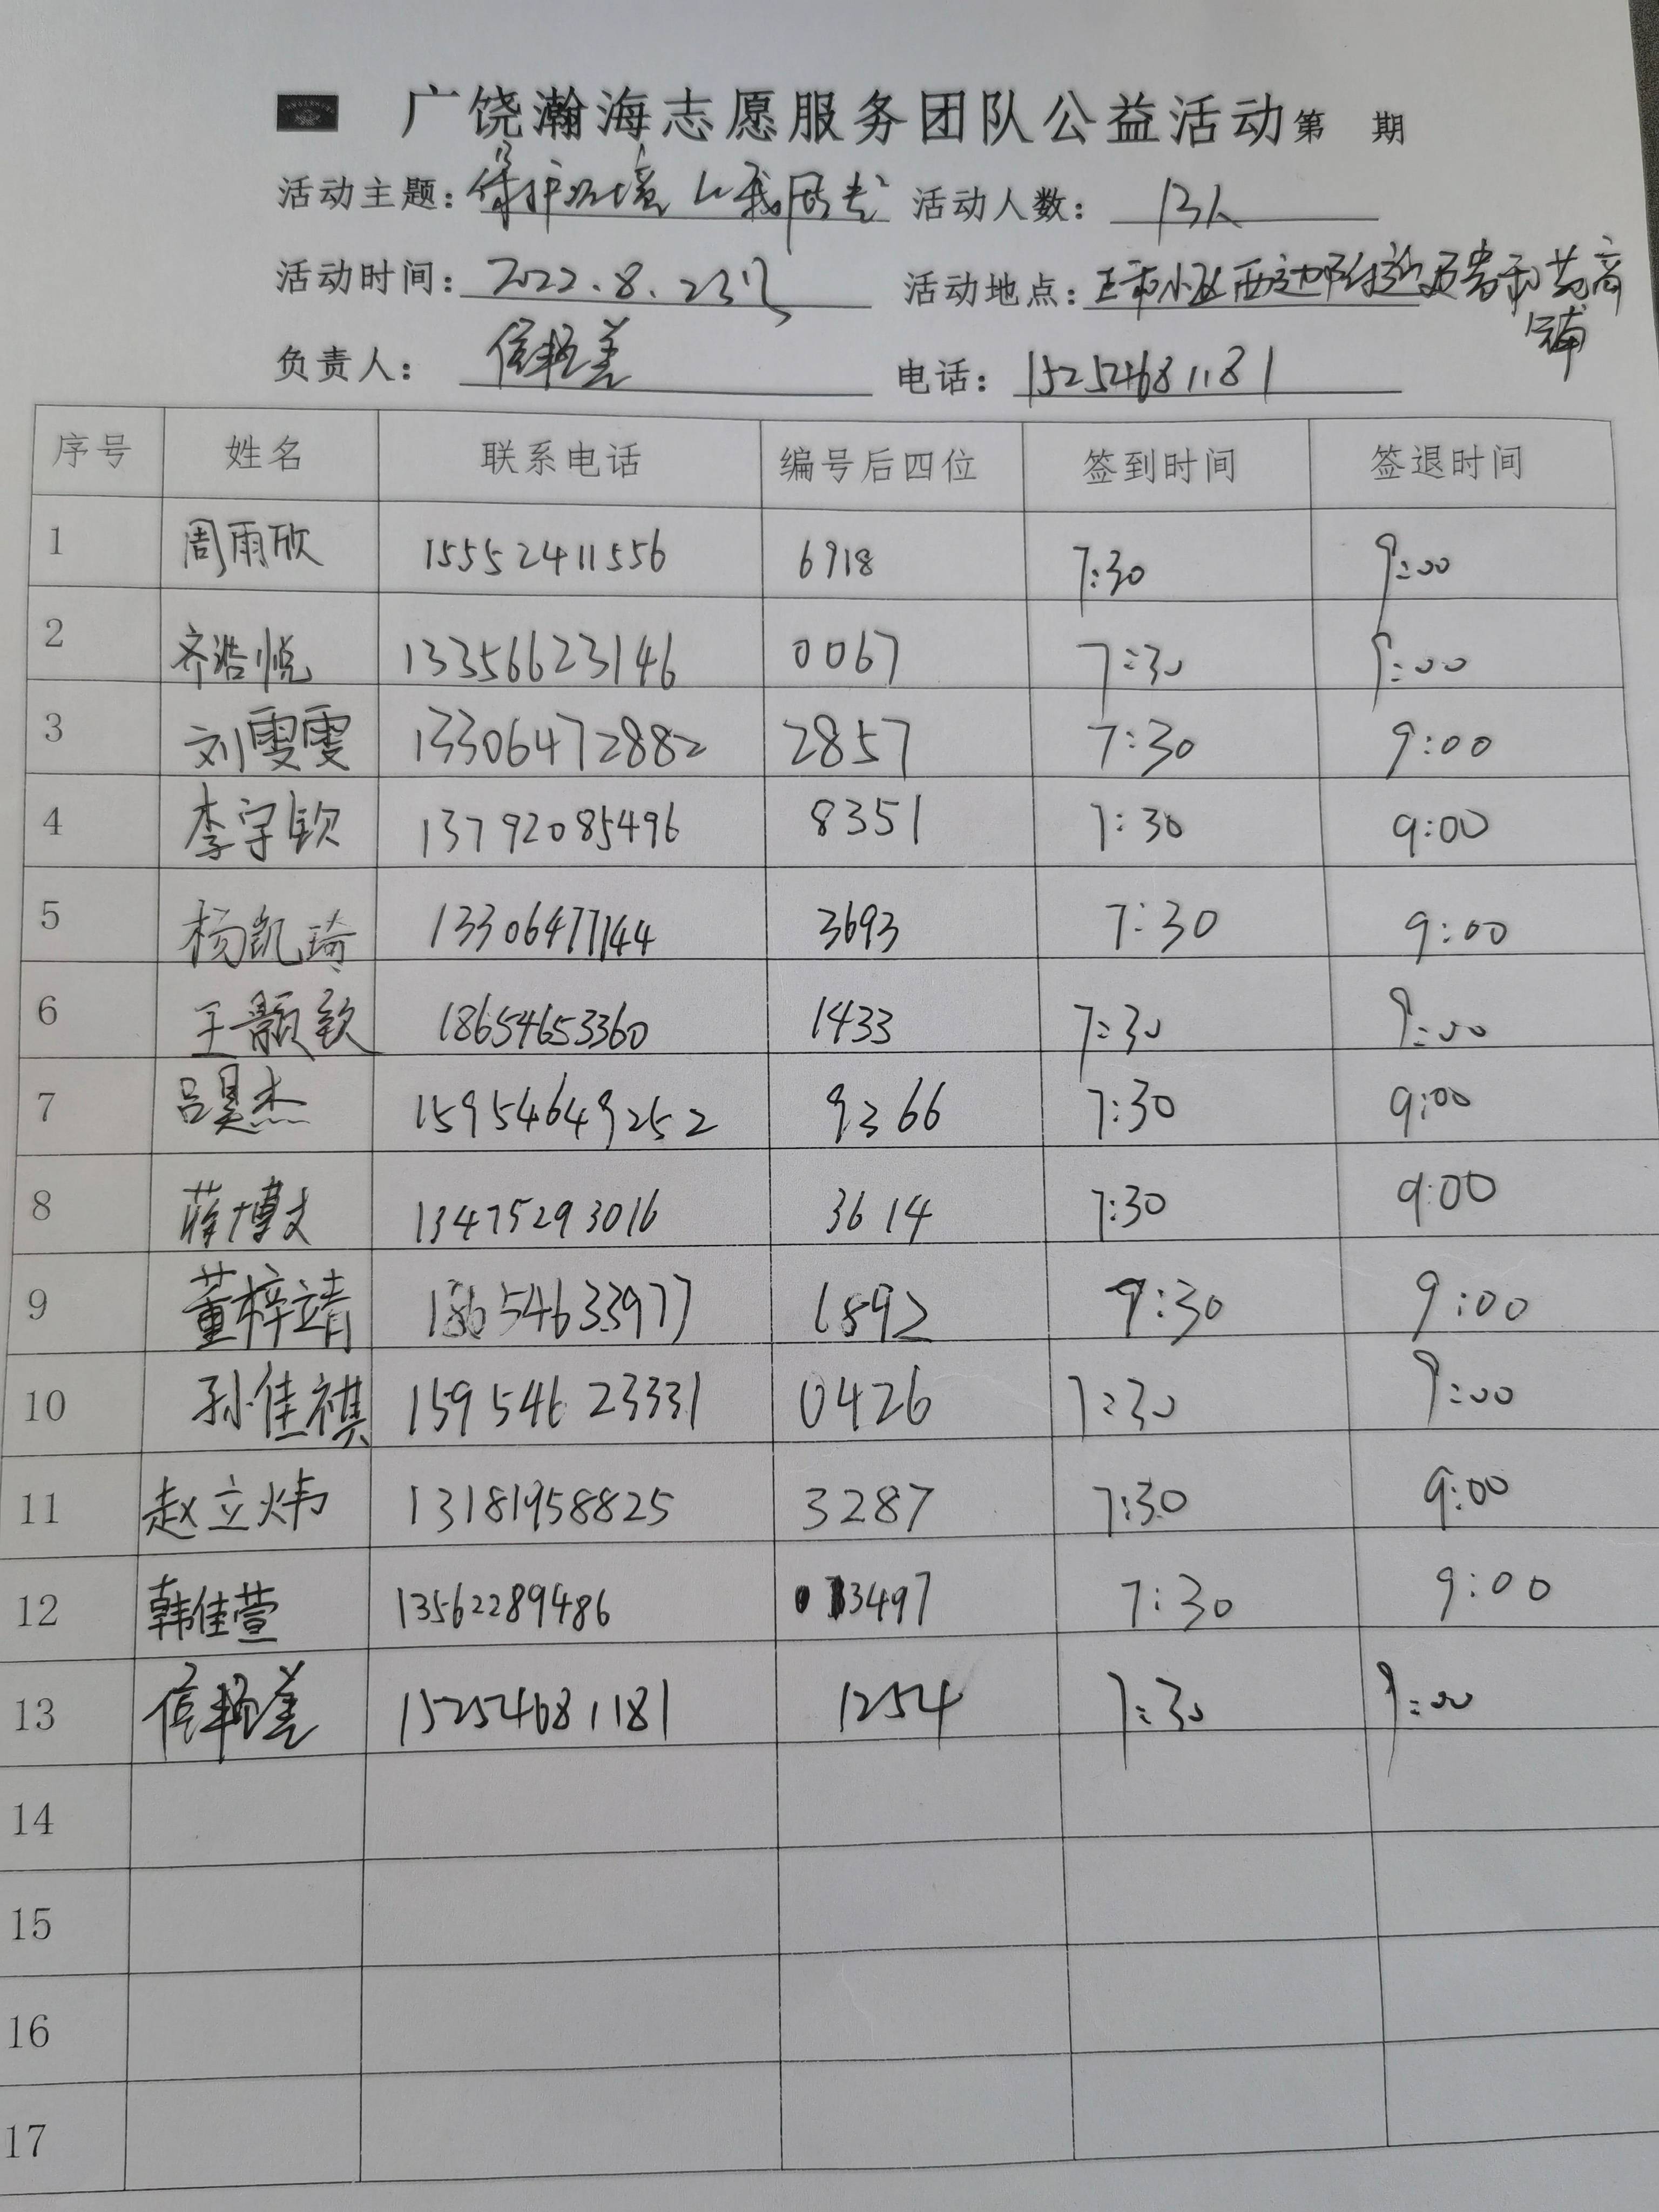 广饶瀚海志愿服务团队公益活动第 期
活动主题：保护环境 从我做起 活动人数：13人
活动时间：2022.8.23日 活动地点：王市小区西边附近
铺
负责人： 电话：15254681181
序号 姓名 联系电话 编号后四位 签到时间 签退时间
1 周雨欣 15552411556 6918 7:30 9:00
2 齐浩悦 13356623146 0067 7:30 9:00
3 刘雯雯 13306472882 2857 7:30 9:00
4 李宇钦 13792085496 8351 7:30 9:00
5 杨凯琦 13306477144 3693 7:30 9:00
6 王颢钦 18654653360 1433 7:30 9:00
7 吕昊杰 15954649252 9366 7:30 9:00
8 蒋博文 13475293016 3614 7:30 9:00
9 董梓靖 18654633977 1892 7:30 9:00
10 孙佳祺 15954623331 0426 7:30 9:00
11 赵立炜 13181958825 3287 7:30 9:00
12 韩佳萱 13562289486 3497 7:30 9:00
13 15254681181 1254 7:30 9:00
14
15
16
17